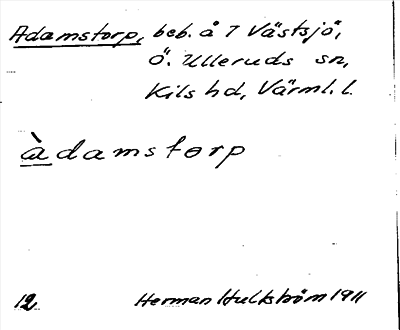 Adamstorp, beb. å 7 Västsjö,
Ö. Ulleruds sn,
Kils hd, Värml. l.
àdamstorp
12 Herman Hultström 1911